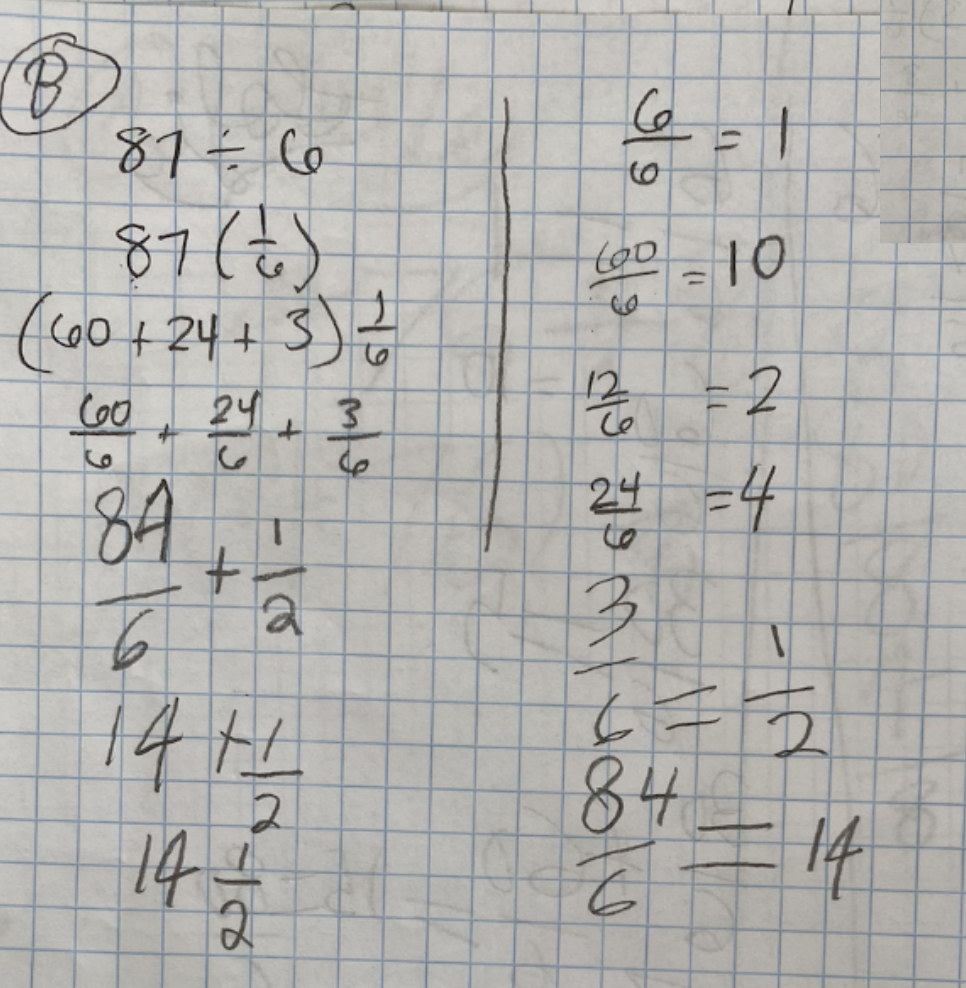 B
87 ÷ 6
87 (1/6)
(60 + 24 + 3) 1/6
60/6 + 24/6 + 3/6
84/6 + 1/2
14 + 1/2
14 1/2
6/6 = 1
60/6 = 10
12/6 = 2
24/6 = 4
3/6 = 1/2
84/6 = 14